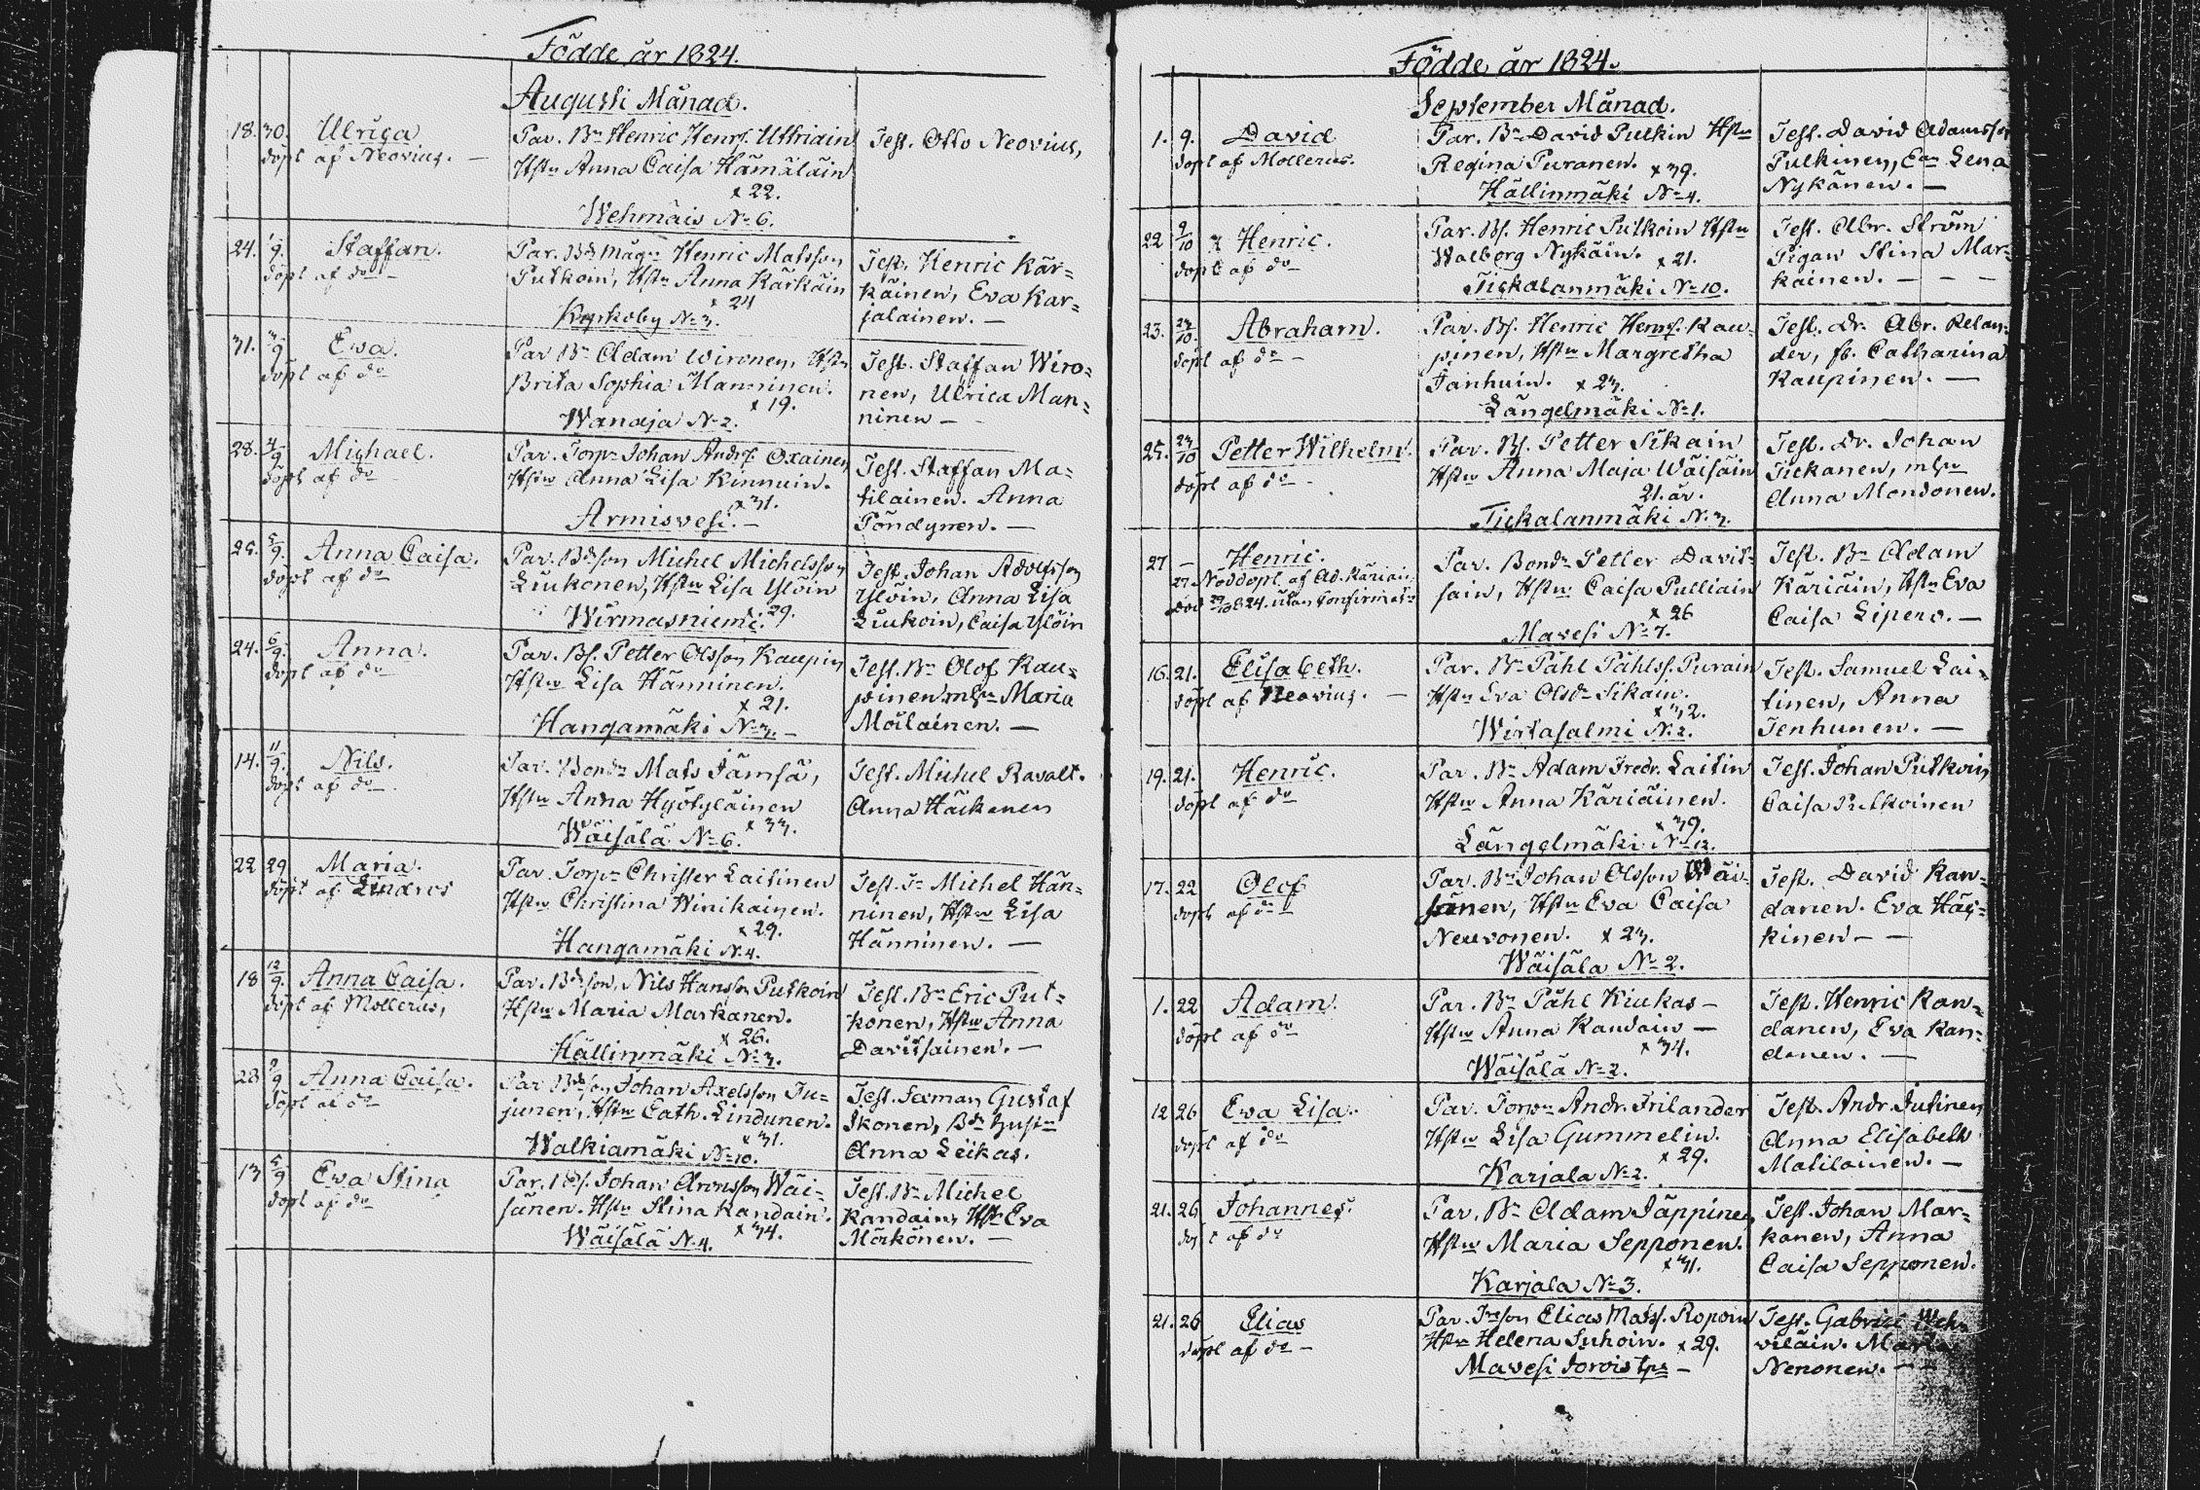 Födde år 1824.
Augusti Månad.
18. 30. Ulrica
döpt af Neovius. —
Par. Bn Henric Henrs. Uttriain
Hstru Anna Caisa Hämäläin
x 22.
Wehmais No 6.
Test. Otto Neovius,
24. 1/9. Staffan.
döpt af do —
Par. Bds måg Henric Matsson
Putkoin, Hstru Anna Kärkäin
x 24
Kyrkoby No 3.
Test. Henric Kär=
käinen, Eva Kar=
jalainen. —
31. 3/9 Eva.
döpt af do
Par Bn Adam Wironen, Hstru
Brita Sophia Manninen.
x 19.
Wanaja No 2.
Test. Staffan Wiro=
nen, Ulrica Man=
ninen —
28. 4/9 Michael.
döpt af do
Par. Torpr Johan Andrs. Oxainen
Hstru Anna Lisa Kinnuin.
x 31.
Armisvesi. —
Test. Staffan Ma=
tilainen. Anna
Pöndynen. —
25. 5/9. Anna Caisa.
döpt af do
Par. Bdson Michel Michelsson
Liukonen, Hstru Lisa Ylöin
29.
Wirmasniemi.
Test. Johan Adolfsson
Ylöin, Anna Lisa
Liukoin, Caisa Ylöin
24. 6/9. Anna.
döpt af do
Par. Bs. Petter Olsson Kaupin
Hstru Lisa Hänninen.
x 21.
Hangamäki No 3. —
Test. Bn Olof Kau=
pinen mln Maria
Moilainen. —
14. 11/9. Nils.
döpt af do —
Par. Bondn Mats Jämsä,
Hstru Anna Hyötyläinen
x 33.
Wäisälä No 6.
Test. Michel Ravalt.
Anna Häckenen
22 29 Maria.
döpt af Lindros
Par. Torpr Christer Laitinen
Hstru Christina Winikainen.
x 29.
Hangamäki N 4.
Test. Tr Michel Hän=
ninen, Hstru Lisa
Hänninen. —
18 12/9. Anna Caisa.
döpt af Mollerus,
Par. Bdson, Nils Hansson Putkoin
Hstru Maria Markanen.
x 26.
Hällinmäki No 3.
Test. Bn Eric Put=
konen, Hstru Anna
Davidsainen. —
28 9/9 Anna Caisa.
döpt af do
Par Bdson Johan Axelsson Ju=
junen, Hstru Cath. Lindunen.
x 31.
Walkiamäki No 10.
Test. Sexman Gustaf
Ikonen, Bdn hustru
Anna Leikas.
13 5/9 Eva Stina
döpt af do
Par. Bds. Johan Aronsson Wäi=
sänen. Hstru Stina Kandain.
x 34.
Wäisälä N 4.
Test. Bn Michel
Kandain, Hstr Eva
Mörkönen. —
Födde år 1824.
September Månad.
1. 9. David
döpt af Mollerus.
Par. Bn David Pulkin Hstru
Regina Puranen. x 39.
Hällinmäki No 4.
Test. David Adamsson
Pulkinen, Eva Lena
Nykänen. —
22 9/10 Henric.
döpt af do
Par. Bs. Henric Putkoin Hstru
Walborg Nykäin. x 21.
Tickalanmäki No 10.
Test. Abr. Ström
Pigan Stina Mar=
kainen. — — —
23. 24/10. Abraham.
döpt af do —
Par. Bs. Henric Henrs. Kau=
pinen, Hstru Margretha
Janhuin. x 23.
Längelmäki No 1.
Test. Dr. Abr. Relan=
der, fb. Catharina
Kaupinen. —
25. 24/10 Petter Wilhelm.
döpt af do —
Par. Bs. Petter Sikain
Hstru Anna Maja Wäisäin
21. år.
Tickalanmäki N. 3.
Test. Dr. Johan
Tickanen, mln
Anna Mondonen.
27 — Henric.
27 Nöddöpt. af Ad. Käriäi
död 1824. utan Confirmatn
Par. Bondn Petter David=
sain, Hstru Caisa Pulliain
x 26
Mavesi No 7.
Test. Bn Adam
Käriäin, Hstru Eva
Caisa Lipero. —
16. 21. Elisabeth.
döpt af Neovius. —
Par. Bn Påhl Påhlss. Purain
Hstru Eva Olsdr Sikain.
x 32.
Wirtasalmi N. 2.
Test. Samuel Lai=
tinen, Anna
Jenhunen. —
19. 21. Henric.
döpt af do
Par. Bn Adam Fredr. Laitin
Hstru Anna Käriäinen.
x 39.
Längelmäki No 12.
Test. Johan Putkoin
Caisa Putkoinen
17. 22 Olof
döpt af do
Par. Bn Johan Olsson Wäi=
sänen, Hstru Eva Caisa
Neuvonen. x 23.
Wäisäla No 2.
Test. David Kan=
danen. Eva Häy=
kinen — —
1. 22 Adam.
döpt af do
Par. Bn Påhl Kiukas —
Hstru Anna Kandain —
x 34.
Wäisälä No 2.
Test. Henric Kan=
danen, Eva Kan=
danen. —
12 26 Eva Lisa.
döpt af do
Par. Torpr Andr. Frilander
Hstru Lisa Gummelin.
x 29.
Karjala No 2.
Test. Andr. Jutinen
Anna Elisabeth
Matilainen. —
21. 26 Johannes.
döpt af do
Par. Bn Adam Jäppinen,
Hstru Maria Sepponen.
x 31.
Karjala No 3.
Test. Johan Mar=
kanen, Anna
Caisa Sepponen.
21. 26 Elias
döpt af do —
Par. Trson Elias Matss. Ropoin
Hstru Helena Juhoin. x 29.
Mavesi Jorois tps —
Test. Gabriel Weh=
viläin. Maria
Nenonen. —